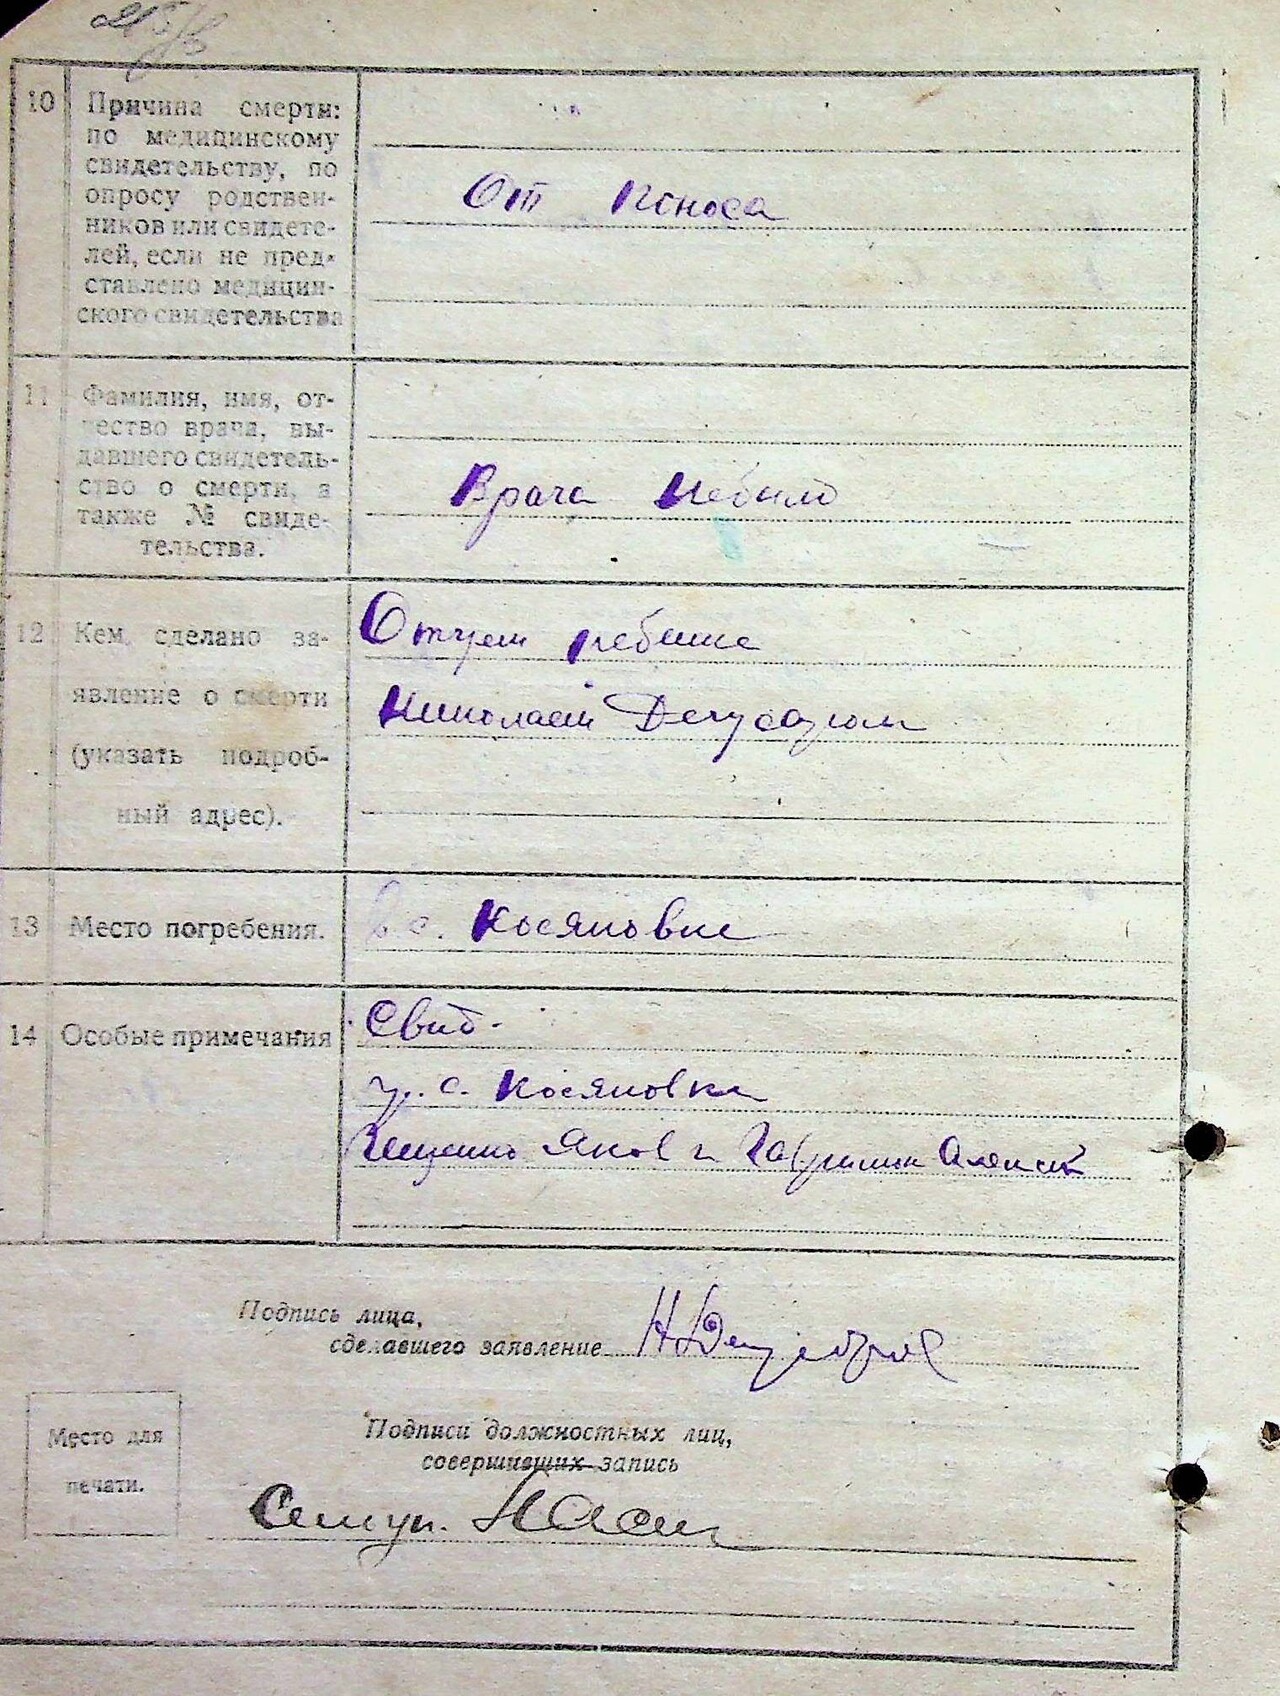 10
Причина смерти:
по медицинскому
свидетельству, по
опросу родствен-
ников или свидете-
лей, если не пред-
ставлено медицин-
ского свидетельства
От поноса
11
Фамилия, имя, от-
чество врача, вы-
давшего свидетель-
ство о смерти, а
также № свиде-
тельства.
Врача небыло
12
Кем сделано за-
явление о смерти
(указать подроб-
ный адрес).
Отцем ребенка
Николаем
13
Место погребения.
В с. Косяновке
14
Особые примечания
Свид.
с. Косяновка
Яков и Гаврилюк Алексей
Подпись лица,
сделавшего заявление
Подписи должностных лиц,
совершивших запись
Место для
печати.